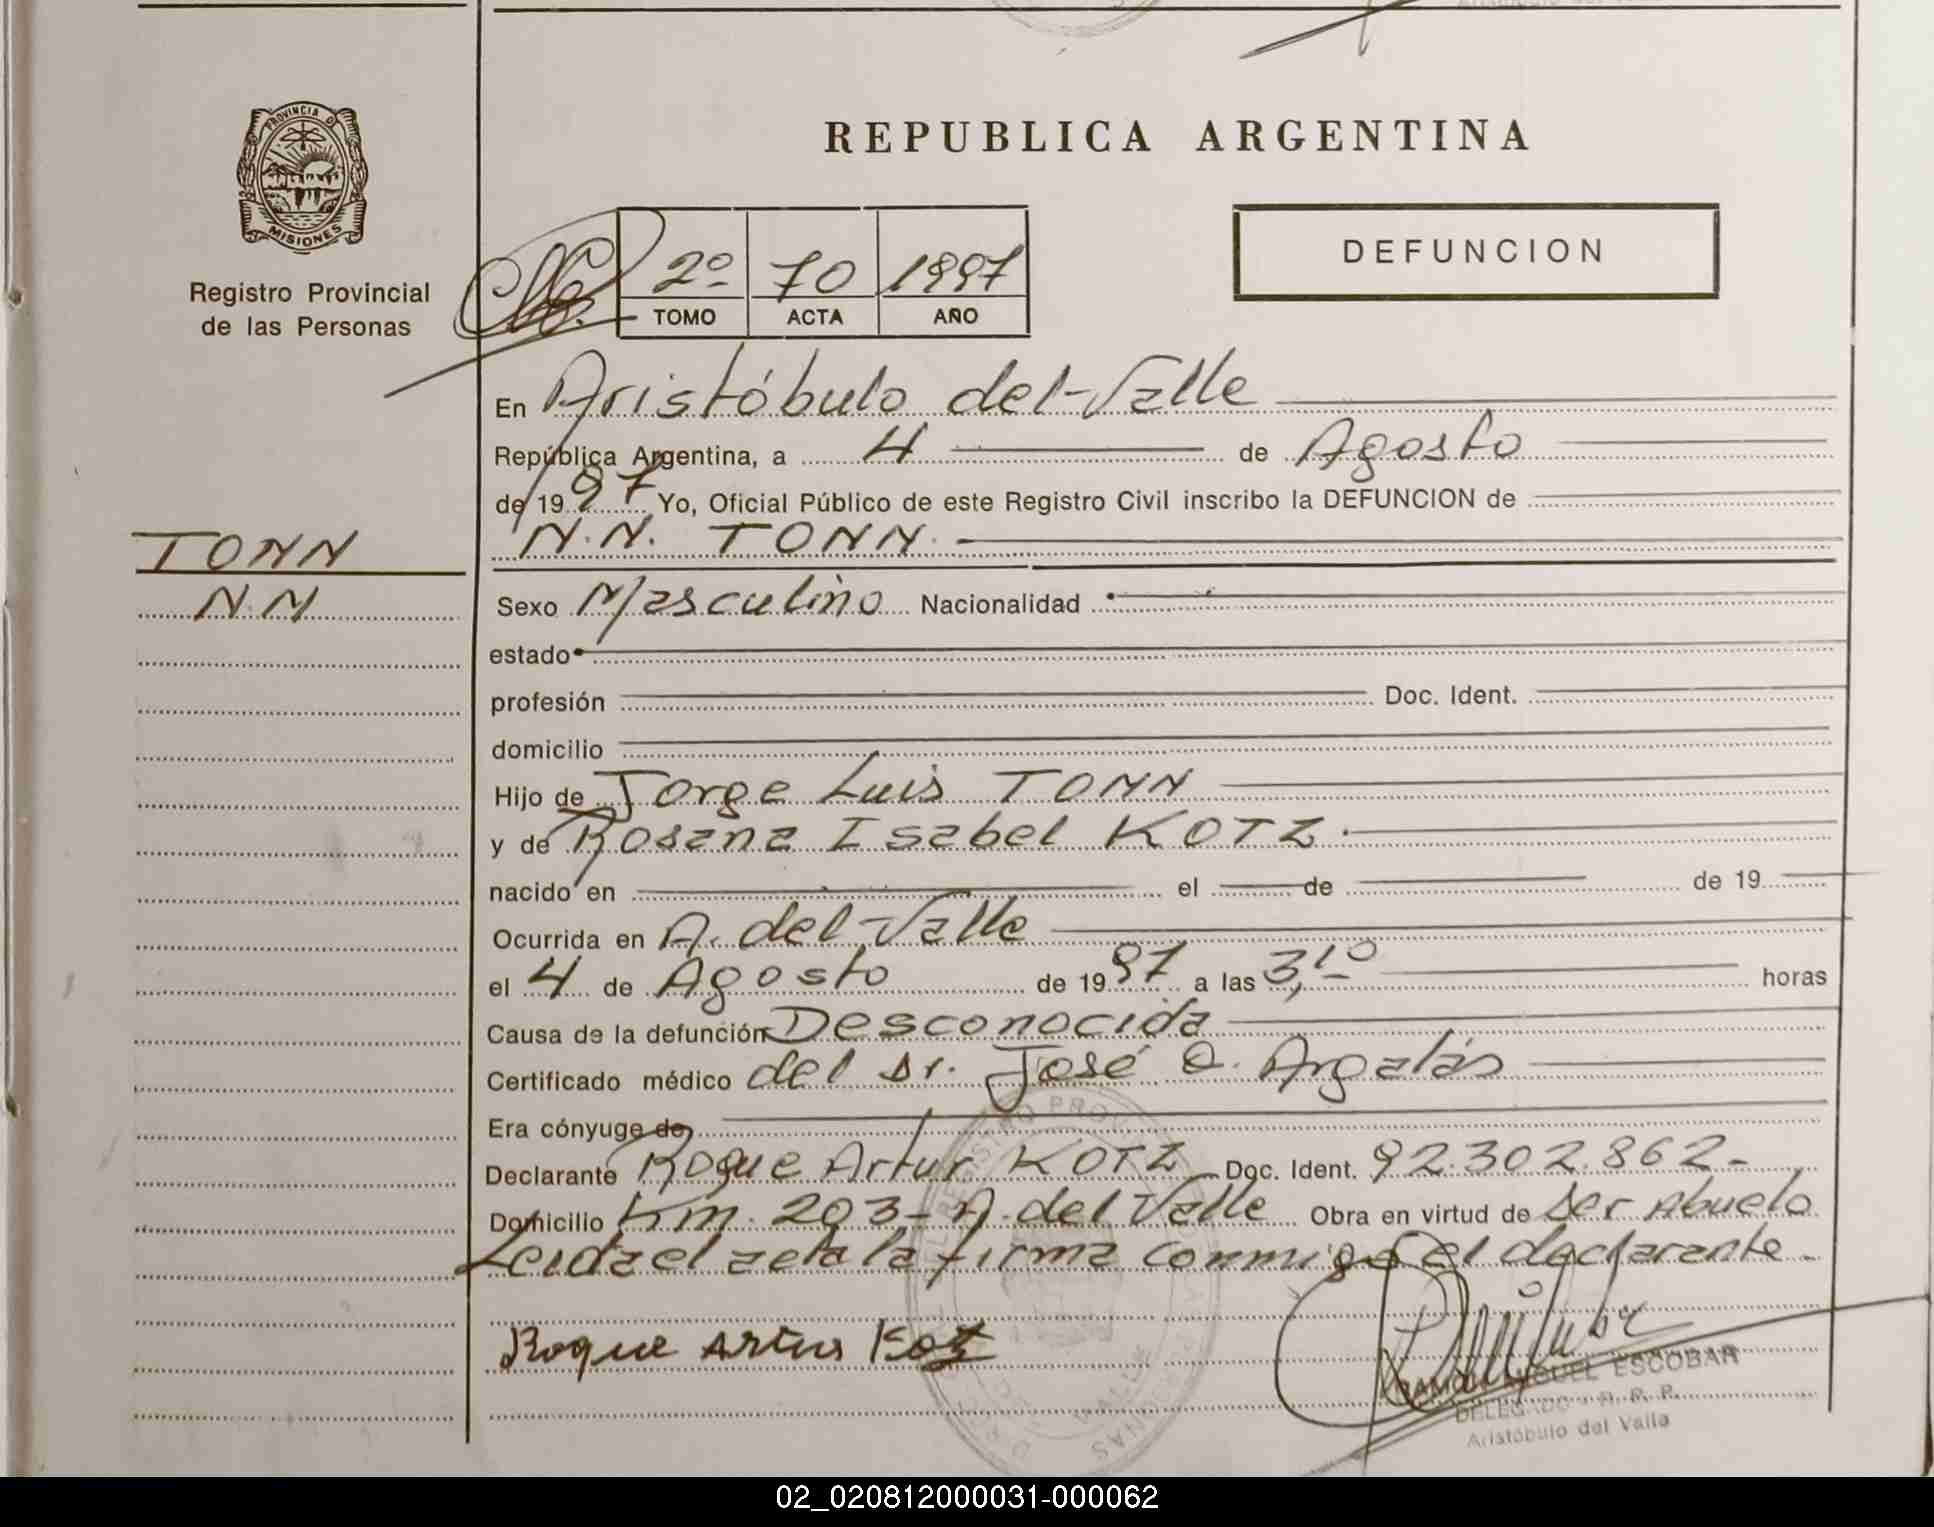 PROVINCIA D
MISIONES
Registro Provincial
de las Personas
REPUBLICA ARGENTINA
2º 70 1997
TOMO ACTA AÑO
DEFUNCION
En Aristóbulo del Valle
República Argentina, a 4 de Agosto
de 1997 Yo, Oficial Público de este Registro Civil inscribo la DEFUNCION de
TONN
N.N. TONN.
N.N
Sexo Masculino Nacionalidad
estado
profesión Doc. Ident.
domicilio
Hijo de Jorge Luis TONN
y de Rosana Isabel KOTZ.
nacido en el de de 19
Ocurrida en A. del Valle
el 4 de Agosto de 1997 a las 3,10 horas
Causa de la defunción Desconocida
Certificado médico del Dr. José O. Argalás
Era cónyuge de
Declarante Roque Artur KOTZ Doc. Ident. 92.302.862-
Domicilio Km. 203- A. del Valle Obra en virtud de Ser Abuelo
Leida el acta la firma conmigo el declarante.
Roque Artur Kotz
RAMON MIGUEL ESCOBAR
DELEGADO - R. P. P.
Aristóbulo del Valle
02_020812000031-000062